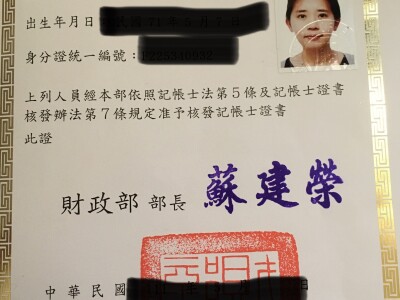 出生年月日
身分證統一編號：
上列人員經本部依照記帳士法第5條及記帳士證書
核發辦法第7條規定准予核發記帳士證書
此證
財政部 部長 蘇建榮
中華民國